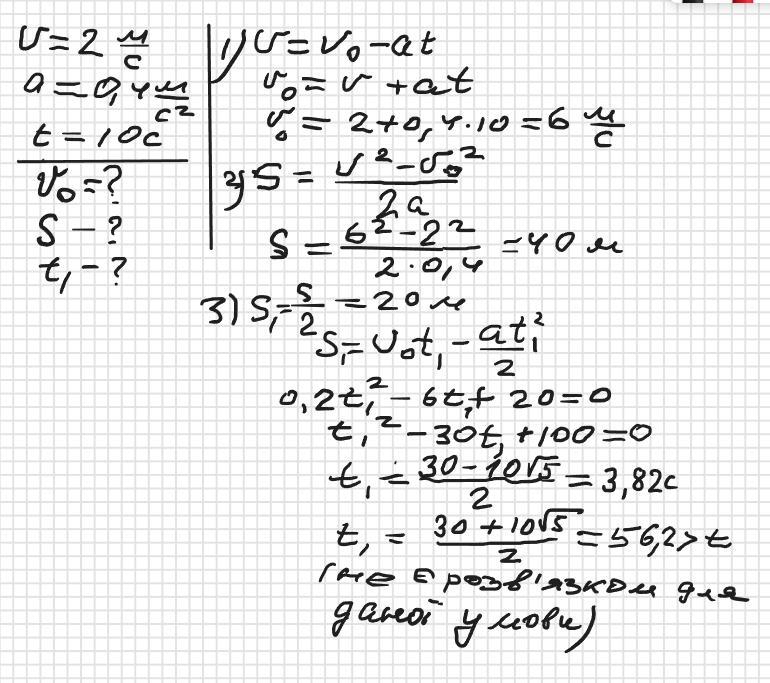 v = 2 м/с
a = 0,4 м/с²
t = 10с
v₀ = ?
S – ?
t₁ – ?
1) v = v₀ – at
v₀ = v + at
v₀ = 2 + 0,4·10 = 6 м/с
2) S = (v² – v₀²)/2a
S = (6² – 2²)/(2·0,4) = 40 м
3) S₁ = S/2 = 20 м
S₁ = v₀t₁ – at₁²/2
0,2t₁² – 6t₁ + 20 = 0
t₁² – 30t₁ + 100 = 0
t₁ = (30 – 10√5)/2 = 3,82с
t₁ = (30 + 10√5)/2 = 56,2 > t
(не є розв'язком для
даної умови)